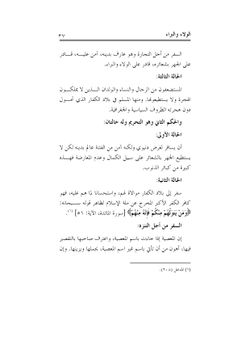 الولاء والبراء
السفر من أجل التجارة وهو عارف بدينه، آمن عليه، قادر
على الجهر بشعائره، قادر على الولاء والبراء.
الحالة الثالثة:
المستضعفون من الرجال والنساء والولدان الذين لا يملكون
الهجرة ولا يستطيعونها. ومنها المسلم في بلاد الكفار الذي تحول
دون هجرته الظروف السياسية والجغرافية.
والحكم الثاني وهو التحريم وله حالتان:
الحالة الأولى:
أن يسافر لغرض دنيوي ولكنه آمن من الفتنة عالم بدينه لكن لا
يستطيع الجهر بالشعائر على سبيل الكمال وعدم المعارضة فهذه
كبيرة من كبائر الذنوب.
الحالة الثانية:
سفر إلى بلاد الكفار موالاة لهم، واستحسانا لما هم عليه، فهو
كافر الكفر الأكبر المخرج عن ملة الإسلام لظاهر قوله سبحانه:
﴿وَمَنْ يَتَوَلَّهُمْ مِنْكُمْ فَإِنَّهُ مِنْهُمْ﴾ [سورة المائدة، الآية: ٥١] (١).
السفر من أجل النزهة:
إن المعصية إذا جاءت باسم المعصية، واعترف صاحبها بالتقصير
فيها؛ أهون من أن تأتي باسم غير اسم المعصية، يجملها ويزينها. وإن